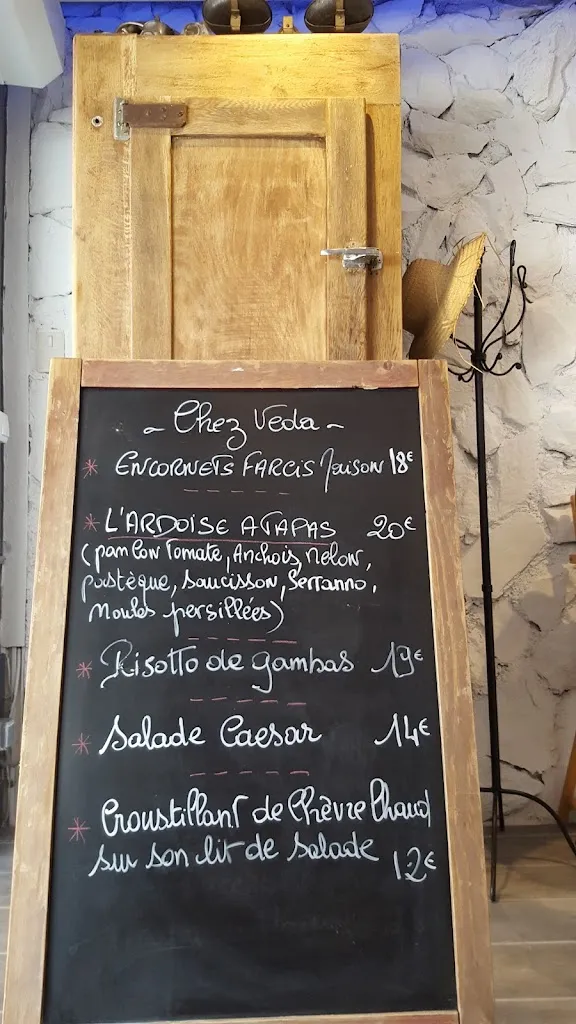 ~ Chez Veda ~
* ENCORNETS FARCIS Maison 18€
* L'ARDOISE A TAPAS 20€
(pan con Tomate, Anchois, Melon,
pastèque, Saucisson, Serranno,
Moules persillées)
* Risotto de gambas 19€
* Salade Caesar 14€
* Croustillant de Chèvre Chaud
sur son lit de salade 12€